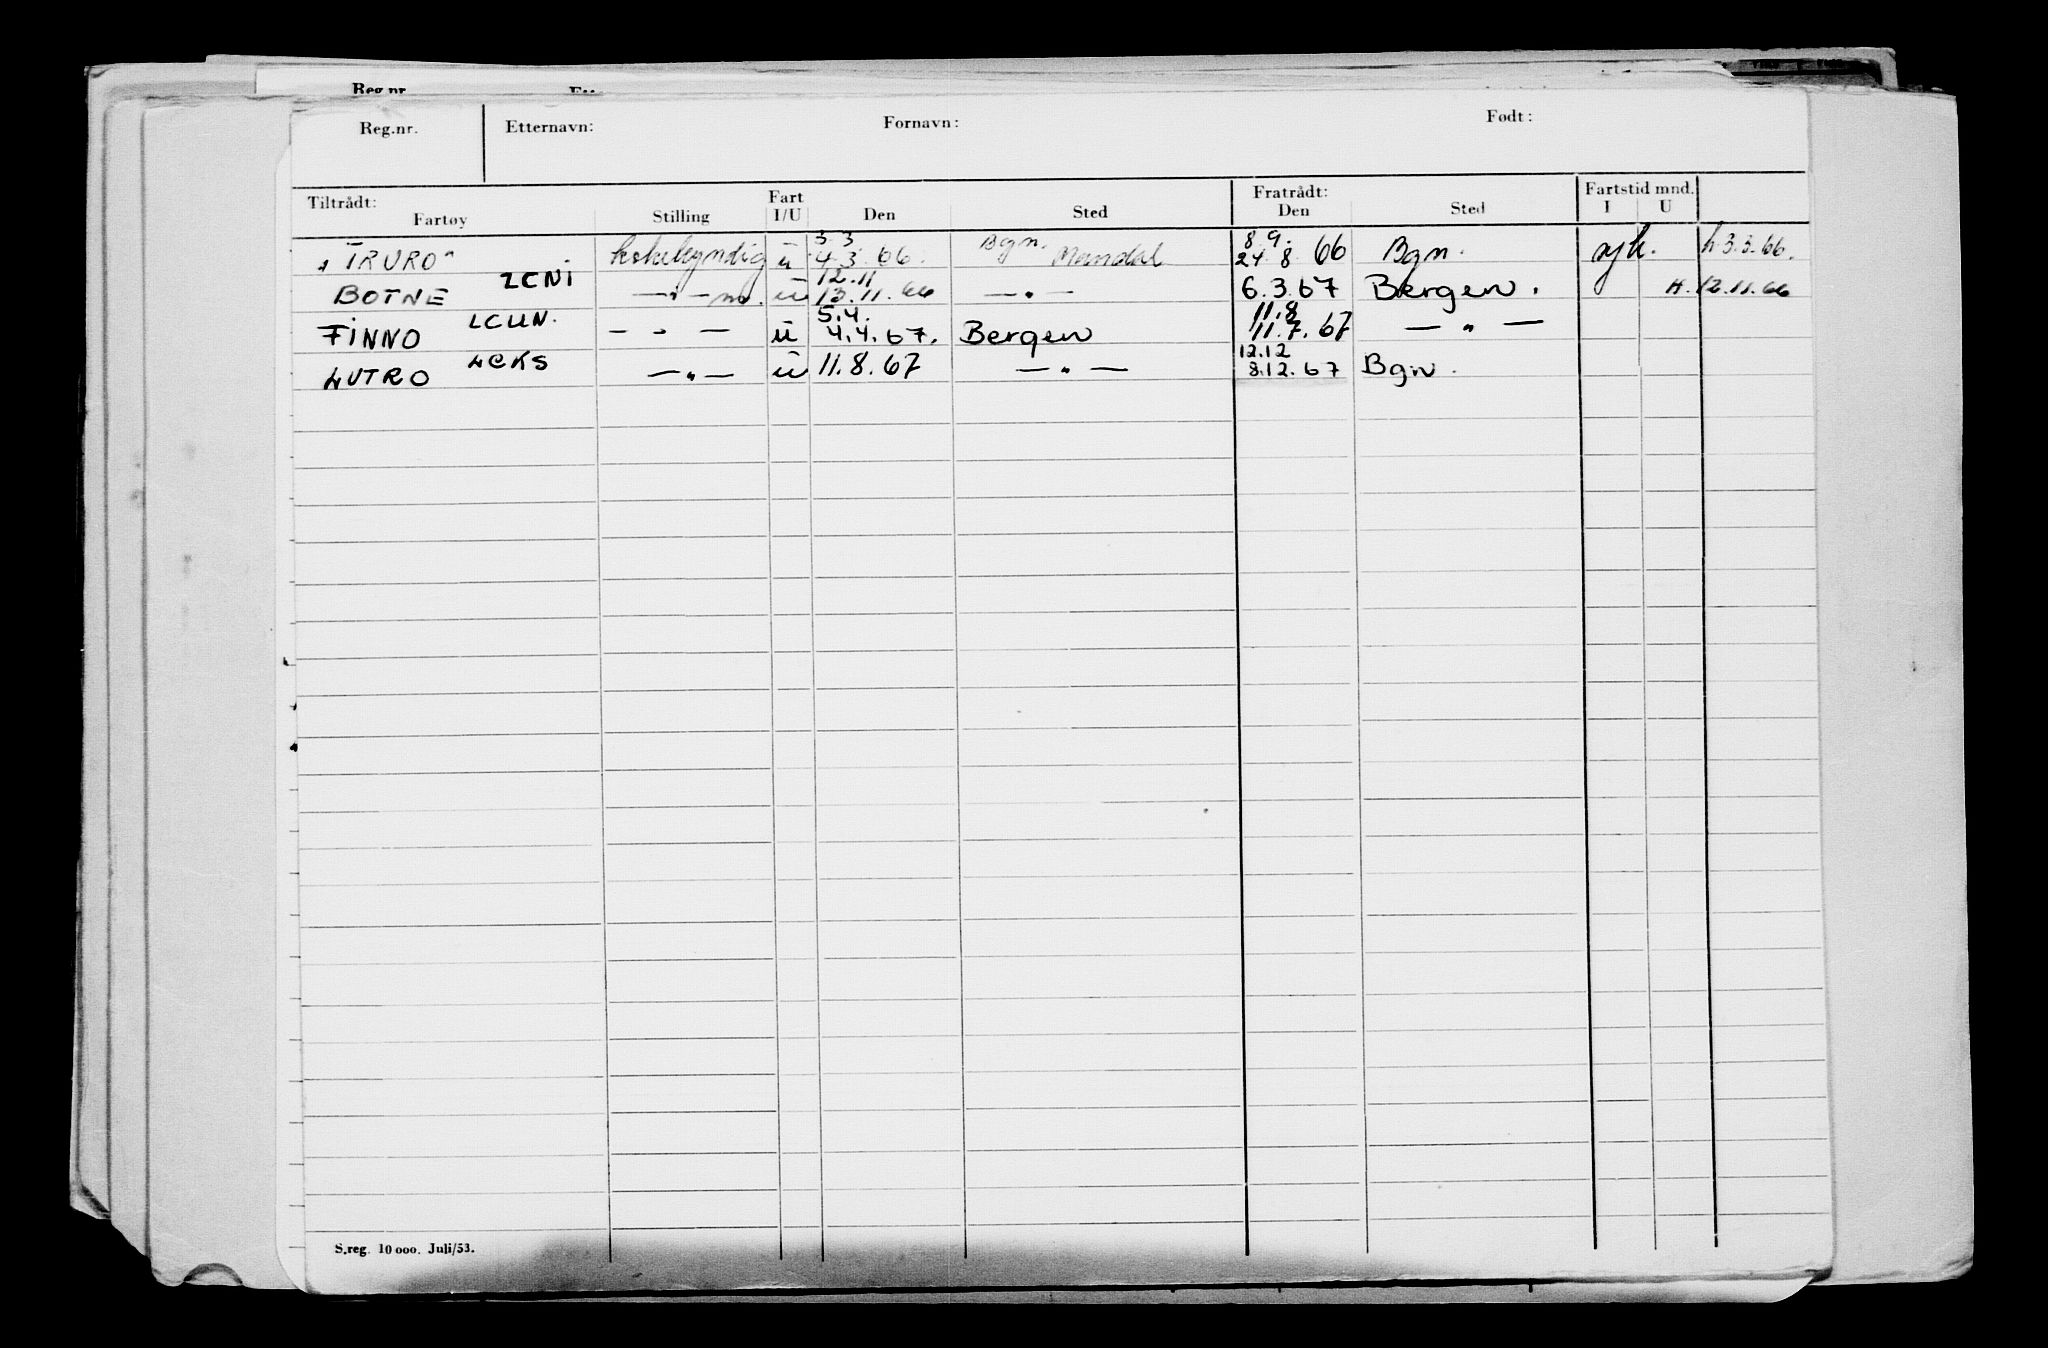 Reg.nr
Reg.nr.
Etternavn:
Fornavn:
Født:
Tiltrådt:
Fartøy
Stilling
Fart
I/U
Den
Sted
Fratrådt:
Den
Sted
Fartstid mnd.
I
U
"TRURO" kokekyndig u 3.3 4.3.66. Bgn. Mandal 8.9. 24.8.66 Bgn. syk. h 3.3.66.
BOTNE LCNI —"— u 12.11 13.11.66 —"— 6.3.67 Bergen. H. 12.11.66
FINNO LCUN. —"— u 5.4. 4.4.67. Bergen 11.8 11.7.67 —"—
LUTRO LCKS —"— u 11.8.67 —"— 12.12 8.12.67 Bgn.
S.reg. 10 000. Juli/53.